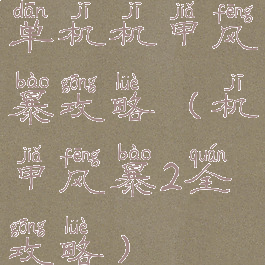 dān jī jī jiǎ fēng
单机机甲风
bào gōng lüè jī
暴攻略（机
jiǎ fēng bào quán
甲风暴2全
gōng lüè
攻略）